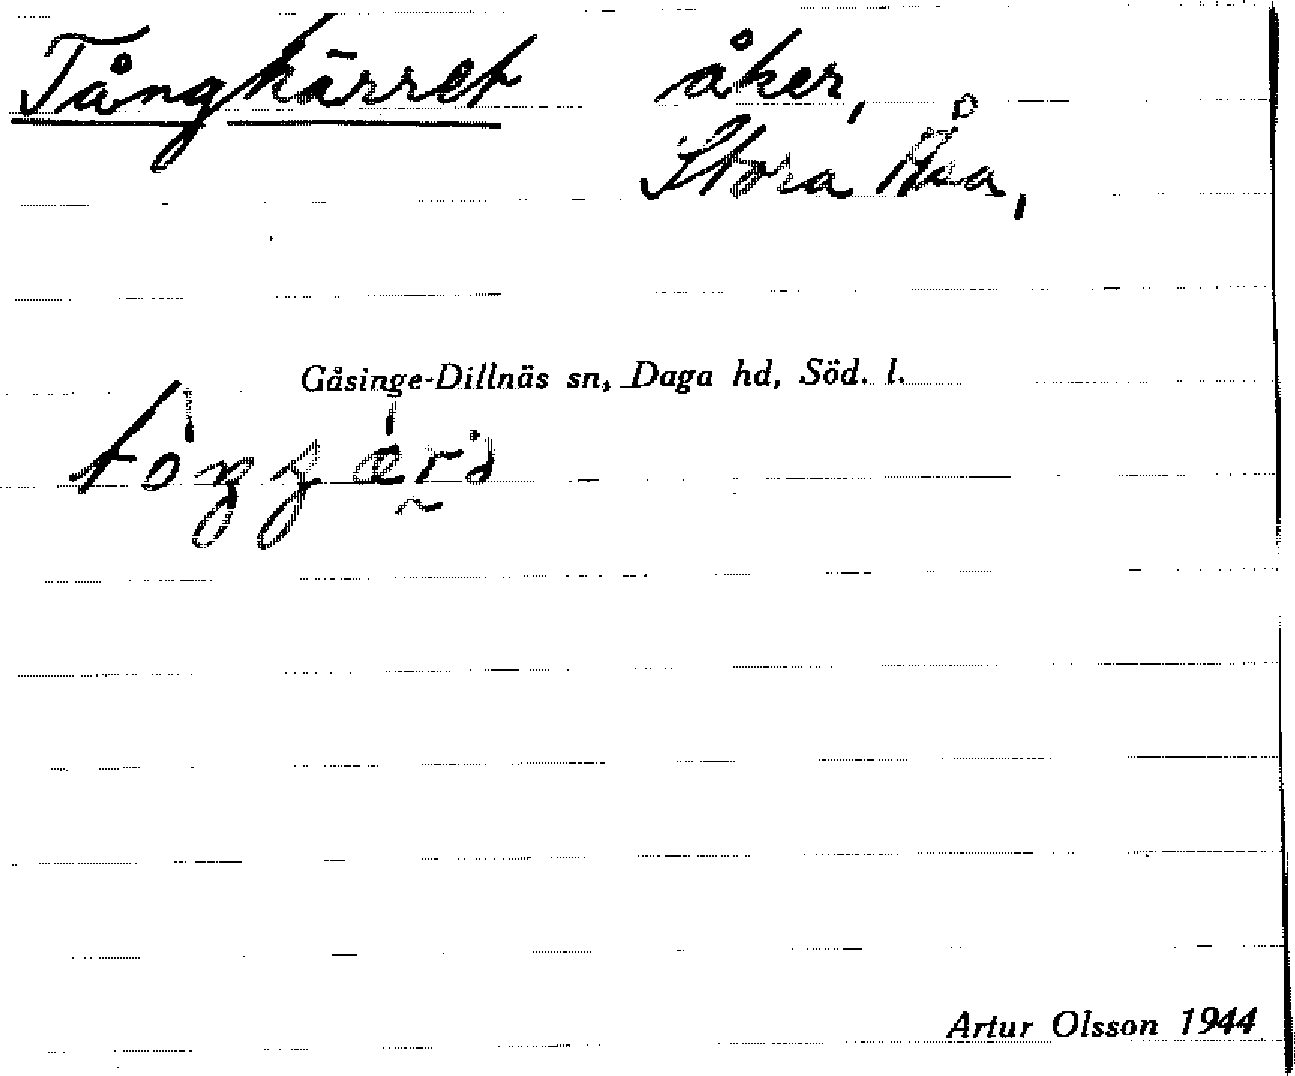 Tångkärret åker,
Stora Åka,
Gåsinge-Dillnäs sn, Daga hd, Söd. l.
Artur Olsson 1944